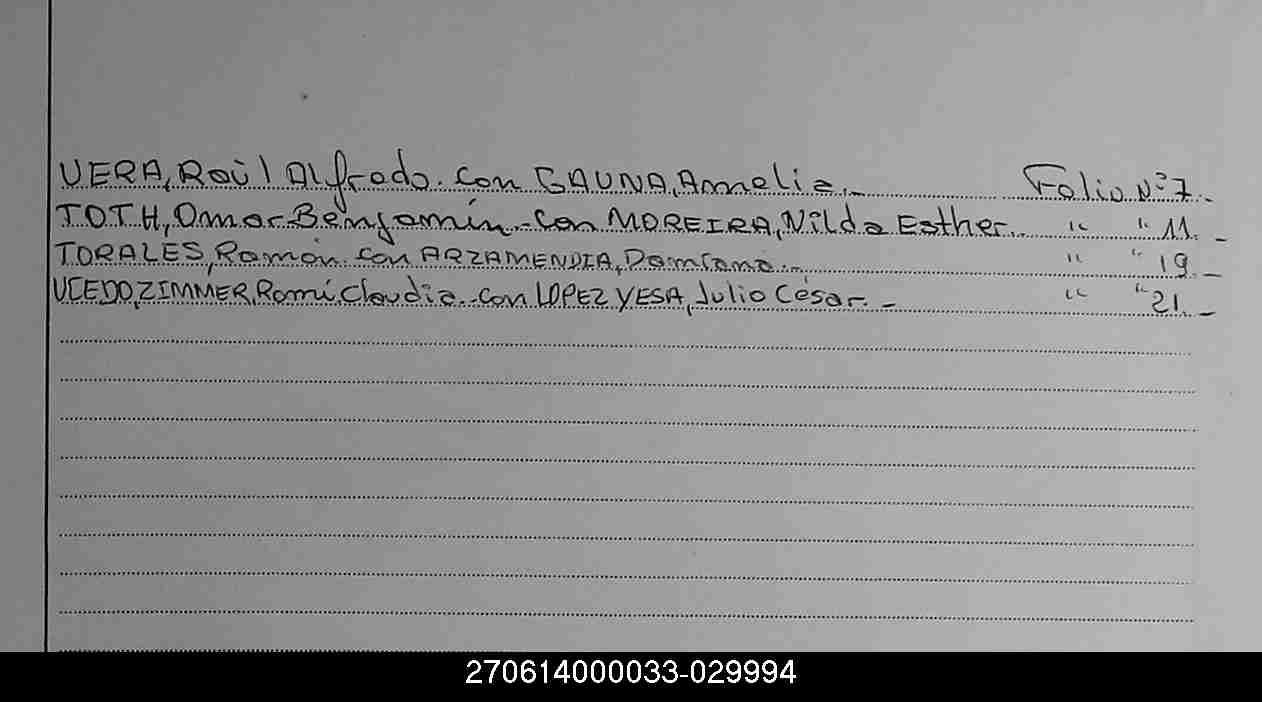 VERA, Raúl Alfredo. con GAUNA, Amelia.- Folio Nº 7.-
TOTH, Omar Benjamín.- con MOREIRA, Nilda Esther.. " " 11.-
TORALES, Ramón con ARZAMENDIA, Damiana.-. " " 19.-
UCEDO, ZIMMER, Romi Claudia.. con LOPEZ YESA, Julio César.- " " 21.-
270614000033-029994